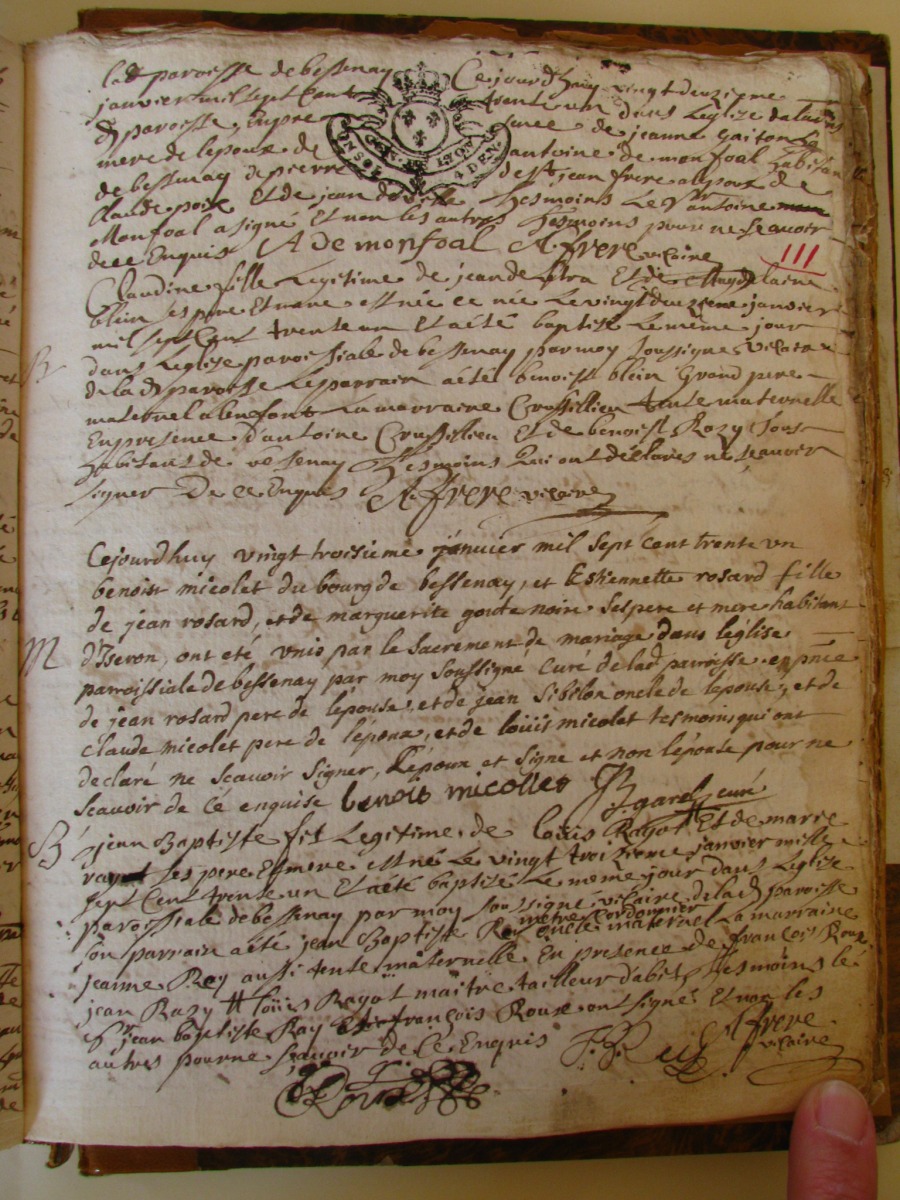 lad paroisse de bessenay Ce jourdhuy vingt deuzieme
janvier mil sept Cent trente un dans Leglize de lad
d paroisse, En pre sence de jeanne gaiton La
mere de lepoux de antoine de monfoal habitan
de bessenay de pierre de st jean frere de
Claude poix Et de jean tesmoins Le sr antoine
Monfoal a signé Et non les autres tesmoins pour ne scavoir
de ce Enquis A De monfoal A. frere vicaire
III
Claudine fille Legitime de jean de Et de Magdelaine
blein ses pere Et mere est née le vingt deuzieme janvier
mil sept Cent trente un Et a été baptisé Le même jour
dans Leglize paroissiale de bessenay par moy soussigné vicaire
B
de la d paroisse Le parrain a été benoist blein Grand pere
maternel a lenfant La marraine Crussillien tente maternelle
En presence d'antoine Crussillien Et de benoist Razy tous
habitans de bessenay tesmoins Qui ont déclarés ne scavoir
signer De ce Enquis A. frere vicaire
Cejourdhuy vingt troisieme janvier mil sept cent trente un
benoist micolet du bourg de bessenay, et Estiennette rosard fille
de jean rosard, et de marguerite goute noire ses pere et mere habitant
M
d'Iseron, ont eté unis par le sacrement de mariage dans leglise
parroissiale de bessenay par moy soussigne curé de lad parroisse en pnce
de jean rosard pere de lepouse, et de jean sibilon oncle de lepouse, et de
claude micolet pere de l'époux, et de loüis micolet tesmoins qui ont
declaré ne scavoir signer, L'époux et signe et non lépouse pour ne
scavoir de cé enquise benois micolles garel curé
B
jean Baptiste fit Legitime de loüis Ragot Et de marie
ses pere Et mere est né Le vingt troizieme janvier mille
sept Cent trente un Et a été baptisé Le meme jour dans Leglize
paroissiale de bessenay par moy soussigné vicaire de la d paroisse
metre Cordonnier
son parrain a été jean Baptiste Rey oncle maternel La marraine
jeanne Rey aussi tente maternelle En presence de françois Roux
jean Razy # loüis Ragot maitre tailleur dabit # tesmoins le
sr jean baptiste Ray Et françois Roux ont signé Et non les
autres pour ne scavoir de Ce Enquis A frere
vicaire
Roux